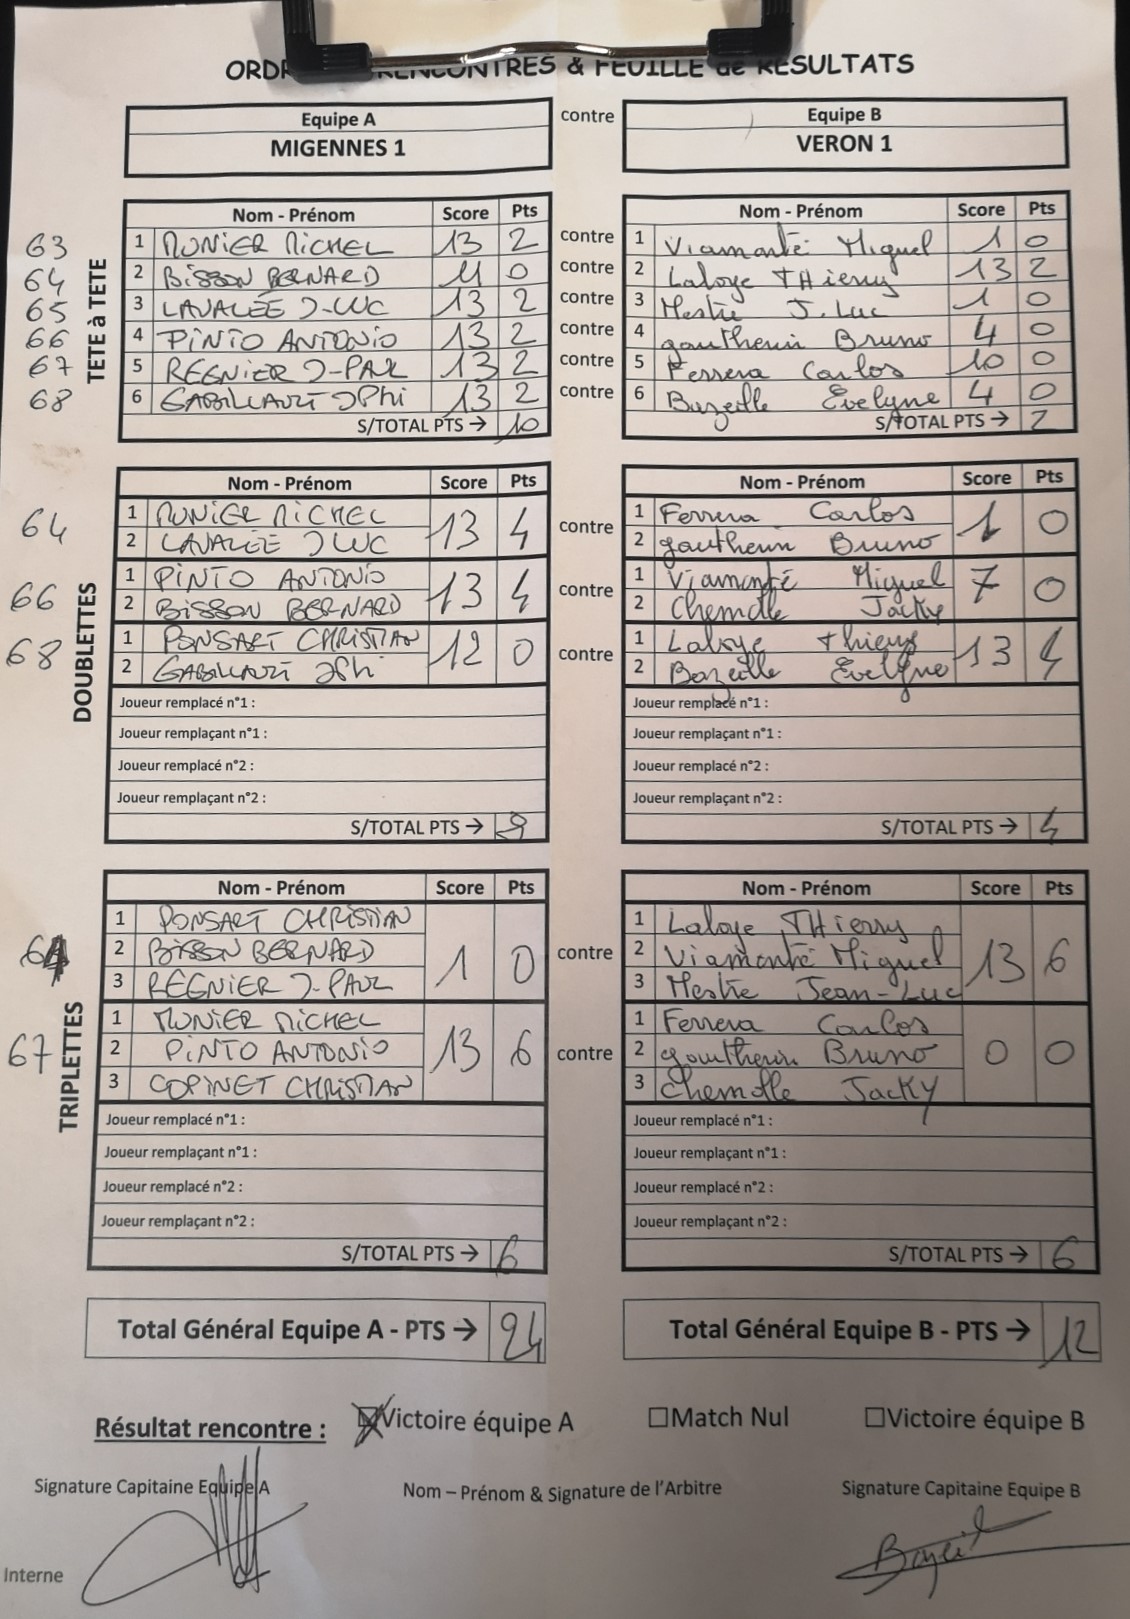 RENCONTRES & FEUILLE de RESULTATS
Equipe A contre Equipe B
MIGENNES 1 VERON 1
TETE à TETE
Nom - Prénom Score Pts Nom - Prénom Score Pts
63 1 MUNIER MICHEL 13 2 contre 1 Viamonté Miguel 1 0
64 2 BISSON BERNARD 11 0 contre 2 Laloye THierry 13 2
65 3 LAVALÉE J-LUC 13 2 contre 3 Mestre J. Luc 1 0
66 4 PINTO ANTONIO 13 2 contre 4 gautherin Bruno 4 0
67 5 REGNIER J-PAUL 13 2 contre 5 Ferrera Carlos 10 0
68 6 GABILLAULT JPhi 13 2 contre 6 Bazeille Evelyne 4 0
S/TOTAL PTS → 10 S/TOTAL PTS → 2
DOUBLETTES
Nom - Prénom Score Pts Nom - Prénom Score Pts
64 1 MUNIER MICHEL 13 4 contre 1 Ferrera Carlos 1 0
2 LAVALÉE J LUC 2 gautherin Bruno
66 1 PINTO ANTONIO 13 4 contre 1 Viamonté Miguel 7 0
2 BISSON BERNARD 2 Chemolle Jacky
68 1 PONSART CHRISTIAN 12 0 contre 1 Laloye thierry 13 4
2 GABILLAULT JPhi 2 Bazeille Evelyne
Joueur remplacé n°1 : Joueur remplacé n°1 :
Joueur remplaçant n°1 : Joueur remplaçant n°1 :
Joueur remplacé n°2 : Joueur remplacé n°2 :
Joueur remplaçant n°2 : Joueur remplaçant n°2 :
S/TOTAL PTS → 8 S/TOTAL PTS → 4
TRIPLETTES
Nom - Prénom Score Pts Nom - Prénom Score Pts
1 PONSART CHRISTIAN 1 Laloye THierry
64 2 BISSON BERNARD 1 0 contre 2 Viamonté Miguel 13 6
3 REGNIER J-PAUL 3 Mestre Jean-Luc
1 MUNIER MICHEL 1 Ferrera Carlos
67 2 PINTO ANTONIO 13 6 contre 2 gautherin Bruno 0 0
3 COPINET CHRISTIAN 3 Chemolle Jacky
Joueur remplacé n°1 : Joueur remplacé n°1 :
Joueur remplaçant n°1 : Joueur remplaçant n°1 :
Joueur remplacé n°2 : Joueur remplacé n°2 :
Joueur remplaçant n°2 : Joueur remplaçant n°2 :
S/TOTAL PTS → 6 S/TOTAL PTS → 6
Total Général Equipe A - PTS → 24 Total Général Equipe B - PTS → 12
Résultat rencontre : Victoire équipe A Match Nul Victoire équipe B
Signature Capitaine Equipe A Nom – Prénom & Signature de l'Arbitre Signature Capitaine Equipe B
Interne